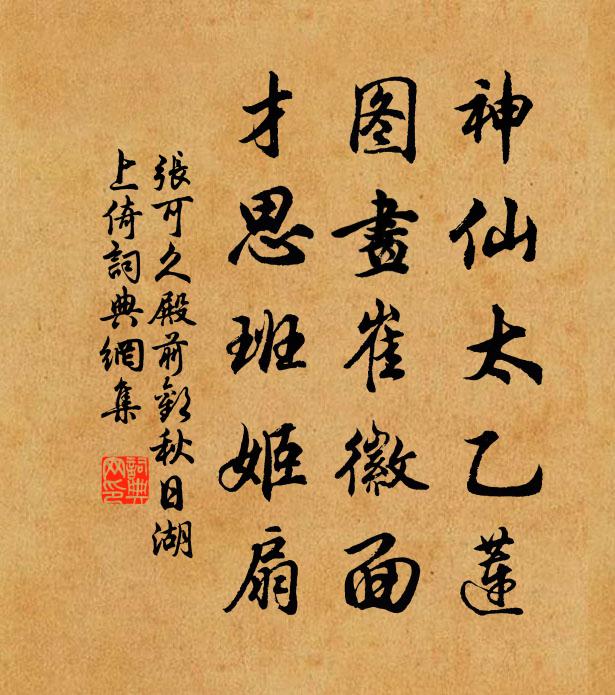 神仙太乙蓮
图畫崔徽面
才思班姬扇
張可久殿前歡秋日湖
上倚詞典網集
詞典网印